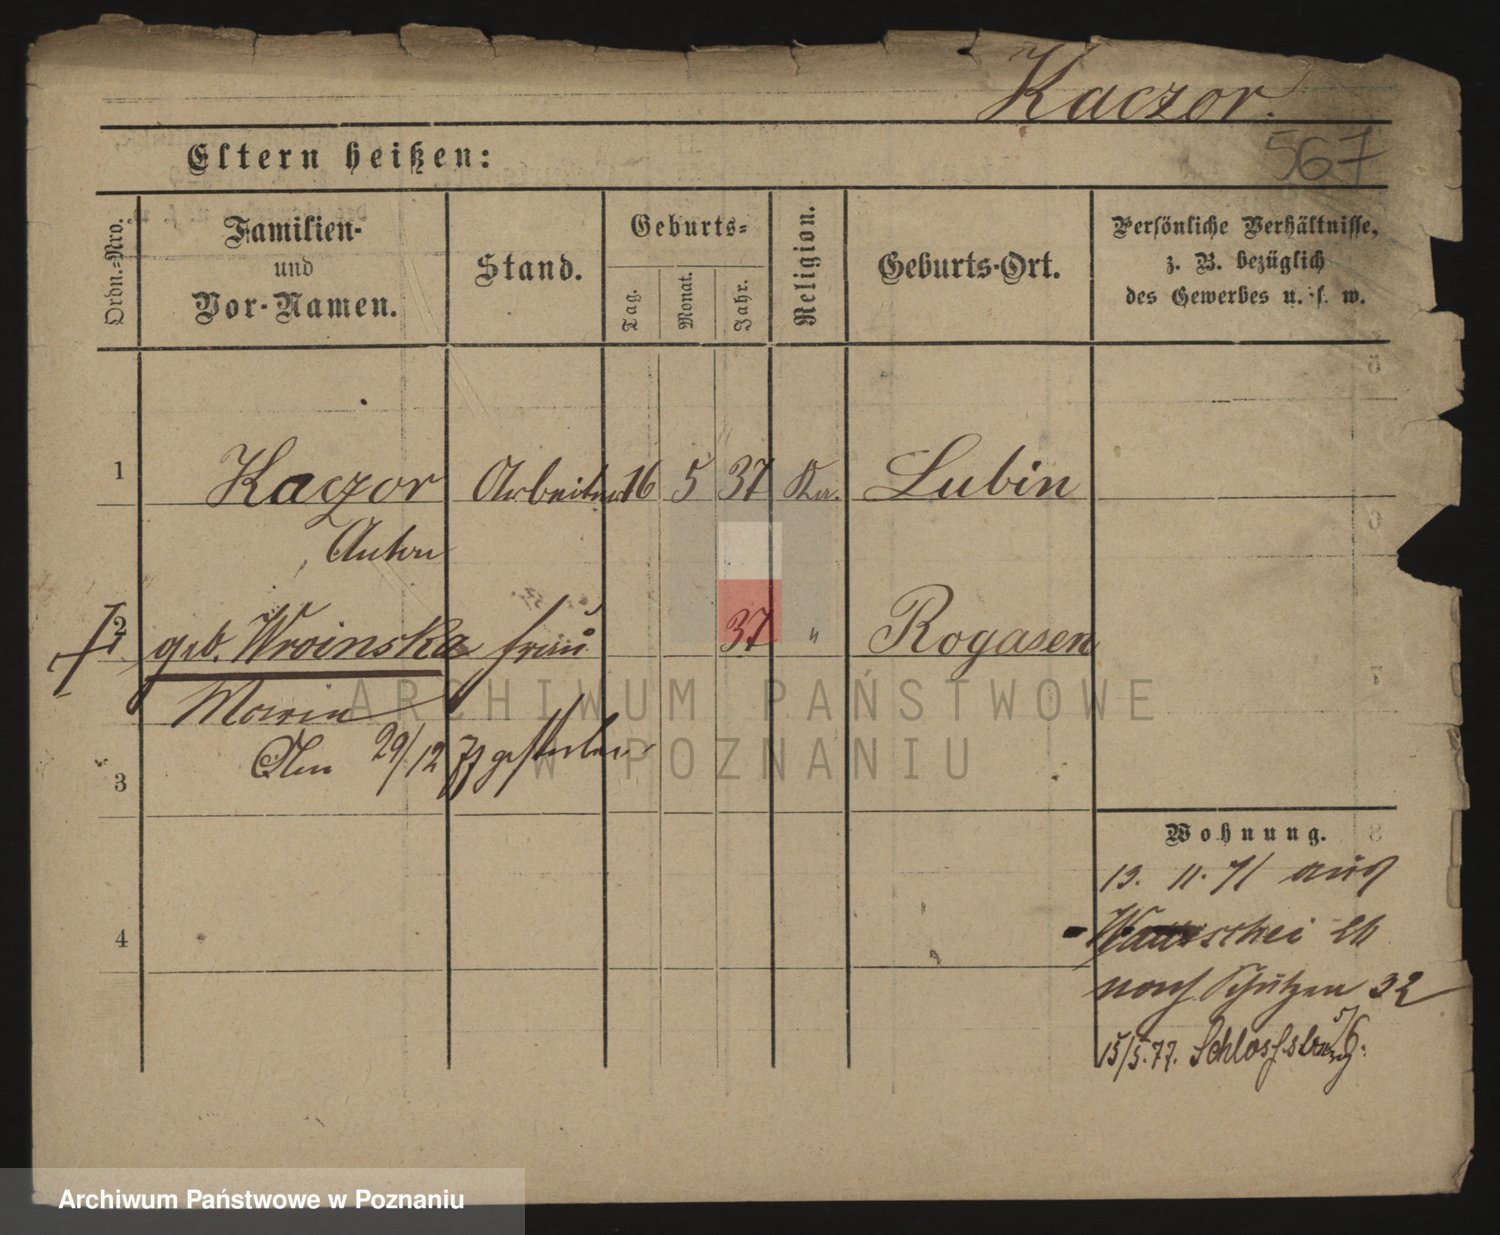 Kaczor.
567
Eltern heißen:
Ordn.-Nro.
Familien-
und
Vor-Namen.
Stand.
Geburts-
Tag.
Monat.
Jahr.
Religion.
Geburts-Ort.
Persönliche Verhältnisse,
z. B. bezüglich
des Gewerbes u. s. w.
1 Kaczor Arbeiter 16 5 37 Lubin
Anton
2 geb. Wroinska Frau 37 " Rogasen
Maria
3 Den 29/12 77 gestorben
4
Wohnung.
13. 11. 71 aus
nach Schützen 32
15/5.77. 5/6.
ARCHIWUM PAŃSTWOWE
W POZNANIU
Archiwum Państwowe w Poznaniu